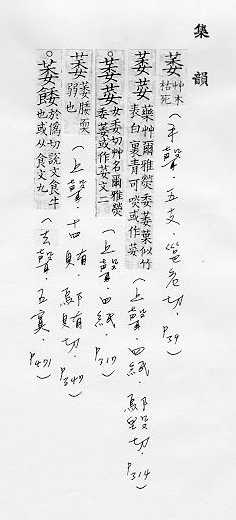 集韻
萎 艸木枯死 (平聲.五支.邕危切.P39)
萎荽 藥艸爾雅熒委萎葉似竹表白裏青可啖或作荽 (上聲.四紙.鄔毀切.P314)
萎荽 女委切艸名爾雅熒委萎或作荽文二 (上聲.四紙.P317)
萎 萎腰耎弱也 (上聲.十四賄.鄔賄切.P347)
萎餧 於偽切説文食牛也或从食文九 (去聲.五寘.P471)